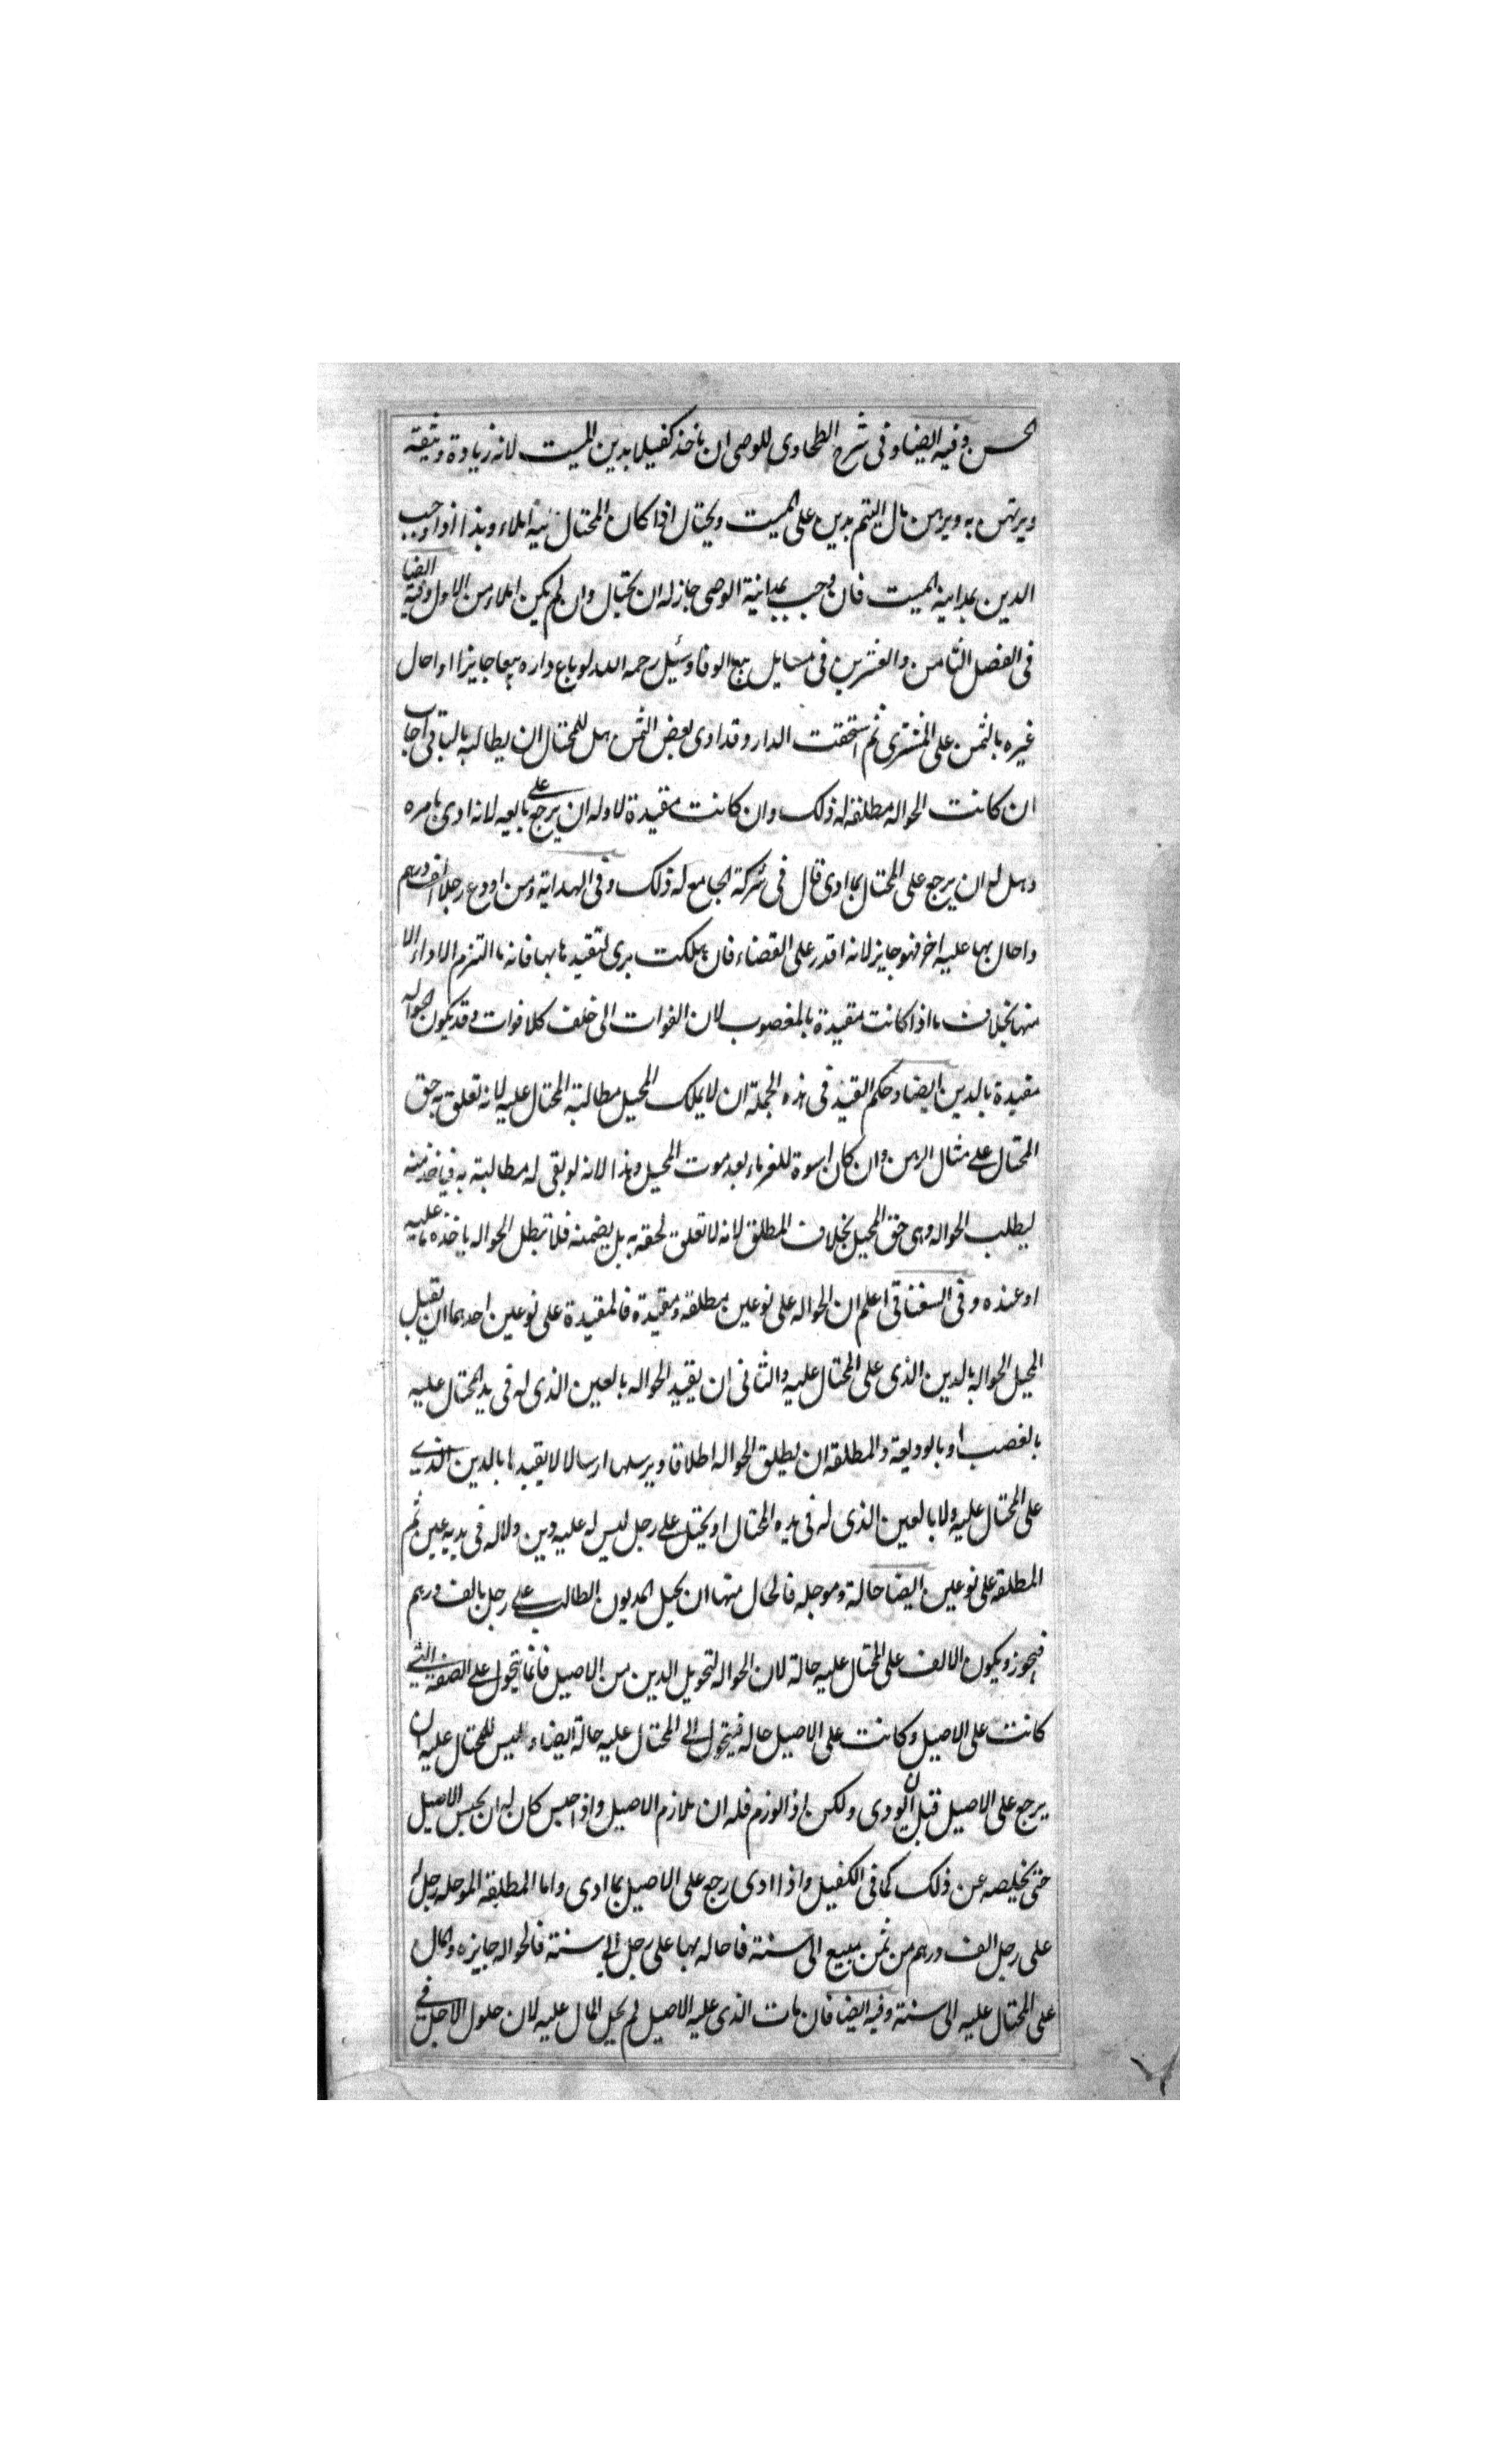 الحسن وفيه ايضا وفى شرح الطحاوى للوصى ان ياخذ كفيلا بدين الميت لانه زيادة وثيقه
ويرتهن به ويرهن مال اليتيم بدين على الميت ويحتال اذا كان المحتال عليه املاء وهذا اذا وجب
الدين بمداينة الميت فان وجب بمداينة الوصى جاز له ان يحتال وان لم يكن املاء من الاول وفيه ايضا
فى الفصل الثامن والعشرين فى مسايل بيع الوفا وسئل رحمه الله لو باع داره بيعا جايزا واحال
غيره بالثمن على المشترى ثم استحقت الدار وقد ادى بعض الثمن هل للمحتال ان يطالبه بالباقى اجاب
ان كانت الحواله مطلقه له ذلك وان كانت مقيدة لا وله ان يرجع على بايعه لانه ادى بامره
وهل له ان يرجع على المحتال بما ادى قال فى شركة الجامع له ذلك وفى الهدايه ومن اودع رجلا الف درهم
واحال بها عليه اخر فهو جايز لانه اقدر على القضاء فان هلكت برى لتقيدها بها فانه ما التزم الاداء الا
منها بخلاف ما اذا كانت مقيدة بالمغصوب لان الفوات الى خلف كلا فوات وقد يكون الحواله
مقيدة بالدين ايضا وحكم القيد فى هذه الجملة ان لا يملك المحيل مطالبة المحتال عليه لانه تعلق به حق
المحتال على مثال الرهن وان كان اسوة للغرماء بعد موت المحيل وهذا لانه لو بقى له مطالبة به فياخذ منه
ليطلب الحواله وهى حق المحيل بخلاف المطلق لانه لا تعلق لحقه به بل بضمنه فلا تبطل الحواله باخذه ما عليه
او عنده وفى السغناقى اعلم ان الحواله على نوعين مطلقه ومقيدة فالمقيدة على نوعين احدهما ان يقيل
المحيل الحواله بالدين الذى على المحتال عليه والثانى ان يقيد الحواله بالعين الذى له فى يد المحتال عليه
بالغصب او بالوديعة والمطلقه ان يطلق الحواله اطلاقا ويرسلها ارسالا لا يقيدها بالدين الذى
على المحتال عليه ولا بالعين الذى له فى يده المحتال او يحتل على رجل ليس له عليه دين ولا له فى يديه عين ثم
المطلقه على نوعين ايضا حالة وموجله فالحال منها ان يحيل المديون الطالب على رجل بالف درهم
فيجوز ويكون الالف على المحتال عليه حالة لان الحواله لتحويل الدين من الاصيل فانما يتحول على الصفة التى
كانت على الاصيل وكانت على الاصيل حاله فيتحول الى المحتال عليه حالة ايضا وليس للمحتال عليه ان
يرجع على الاصيل قبل ان يودى ولكن اذا لوزم فله ان يلازم الاصيل واذا حبس كان له ان يحبس الاصيل
حتى يخلصه عن ذلك كما فى الكفيل واذا ادى رجع على الاصيل بما ادى واما المطلقه الموجله رجل له
على رجل الف درهم من ثمن مبيع الى سنة فاحاله بها على رجل الى سنة فالحواله جايزه والمال
على المحتال عليه الى سنة وفيه ايضا فان مات الذى عليه الاصيل لم يحل المال عليه لان حلول الاجل فى